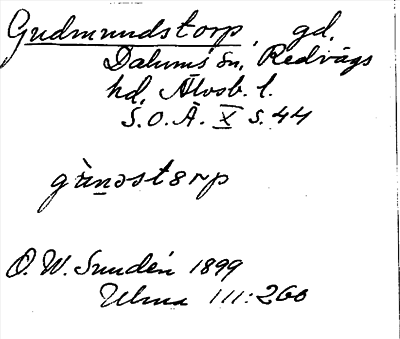 Gudmundstorp, gd.
Dalums sn, Redvägs
hd, Älvsb. l.
S.O.Ä. X s. 44
gùnəstɔrp
O. W. Sundén 1899
Ulma 111:260